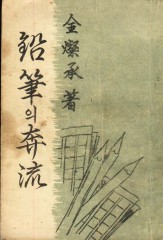 金燦承 著
鉛筆의 奔流